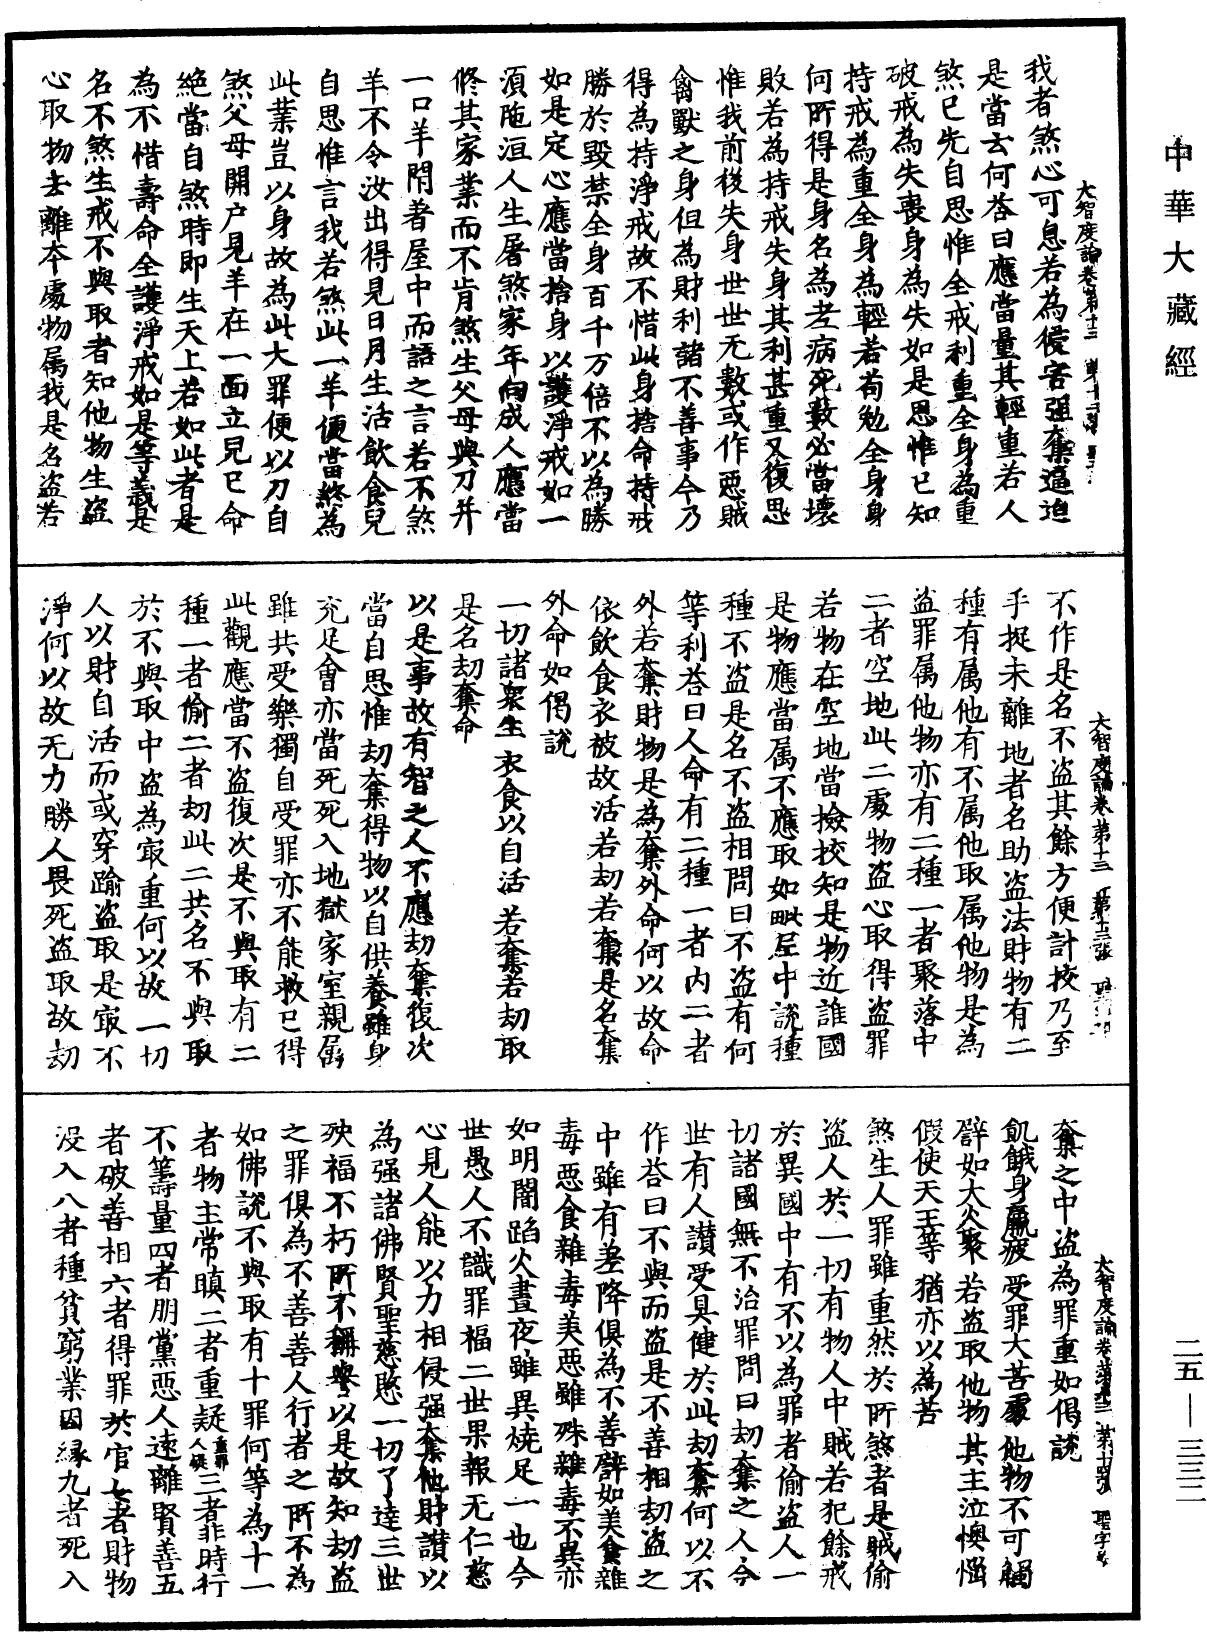 中華大藏經
我者煞心可息若為侵害強奪逼迫
是當云何荅曰應當量其輕重若人
煞巳先自思惟全戒利重全身為重
破戒為失喪身為失如是思惟已知
持戒為重全身為輕若苟勉全身身
何所得是身名為老病死藪必當壞
敗若為持戒失身其利甚重又復思
惟我前後失身世世无數或作惡賊
禽獸之身但為財利諸不善事今乃
得為持淨戒故不惜此身捨命持戒
勝於毀禁全身百千万倍不以為勝
如是定心應當捨身以護淨戒如一
須陁洹人生屠煞家年向成人應當
修其家業而不肯煞生父母與刀并
一口羊閇著屋中而語之言若不煞
羊不令汝出得見日月生活飲食兒
自思惟言我若煞此一羊便當終為
此業豈以身故為此大罪便以刀自
煞父母開户見羊在一面立兒已命
絕當自煞時即生天上若如此者是
為不惜壽命全護淨戒如是等義是
名不煞生戒不與取者知他物生盜
心取物去離本處物属我是名盜若
大智度論卷第十三
不作是名不盜其餘方便計挍乃至
手捉未離地者名助盜法財物有二
種有属他有不属他取属他物是為
盜罪属他物亦有二種一者聚落中
二者空地此二處物盜心取得盜罪
若物在空地當撿挍知是物近誰國
是物應當属不應取如毗尼中說種
種不盜是名不盜相問曰不盜有何
等利荅曰人命有二種一者內二者
外若奪財物是為奪外命何以故命
依飲食衣被故活若劫若奪是名奪
外命如偈說
一切諸衆生　衣食以自活　若奪若劫取
是名劫奪命
以是事故有智之人不應劫奪復次
當自思惟劫奪得物以自供養雖身
充足會亦當死死入地獄家室親属
雖共受樂獨自受罪亦不能救已得
此觀應當不盜復次是不與取有二
種一者偷二者劫此二共名不與取
於不與取中盜為㝡重何以故一切
人以財自活而或穿踰盜取是㝡不
淨何以故无力勝人畏死盜取故劫
大智度論卷第十三　第十三張
奪之中盜為罪重如偈說
飢餓身羸疲　受罪大苦處　他物不可觸
譬如大火聚　若盜取他物　其主泣懊惱
假使天王等　猶亦以為苦
煞生人罪雖重然於所煞者是賊偷
盜人於一切有物人中賊若犯餘戒
於異國中有不以為罪者偷盜人一
切諸國無不治罪問曰劫奪之人今
世有人讃受具健於此劫奪何以不
作荅曰不與而盜是不善相劫盜之
中雖有差降俱為不善譬如美食雜
毒惡食雜毒美惡雖殊雜毒不異亦
如明闇蹈火晝夜雖異燒足一也今
世愚人不識罪福二世果報无仁慈
心見人能以力相侵強奪他財讃以
為強諸佛賢聖慈愍一切了達三世
殃福不朽所不稱譽以是故知劫盜
之罪俱為不善善人行者之所不為
如佛說不與取有十罪何等為十一
者物主常瞋二者重疑重罪人疑三者非時行
不籌量四者朋黨惡人遠離賢善五
者破善相六者得罪於官七者財物
沒入八者種貧窮業因緣九者死入
大智度論卷第十三
二五—三三二